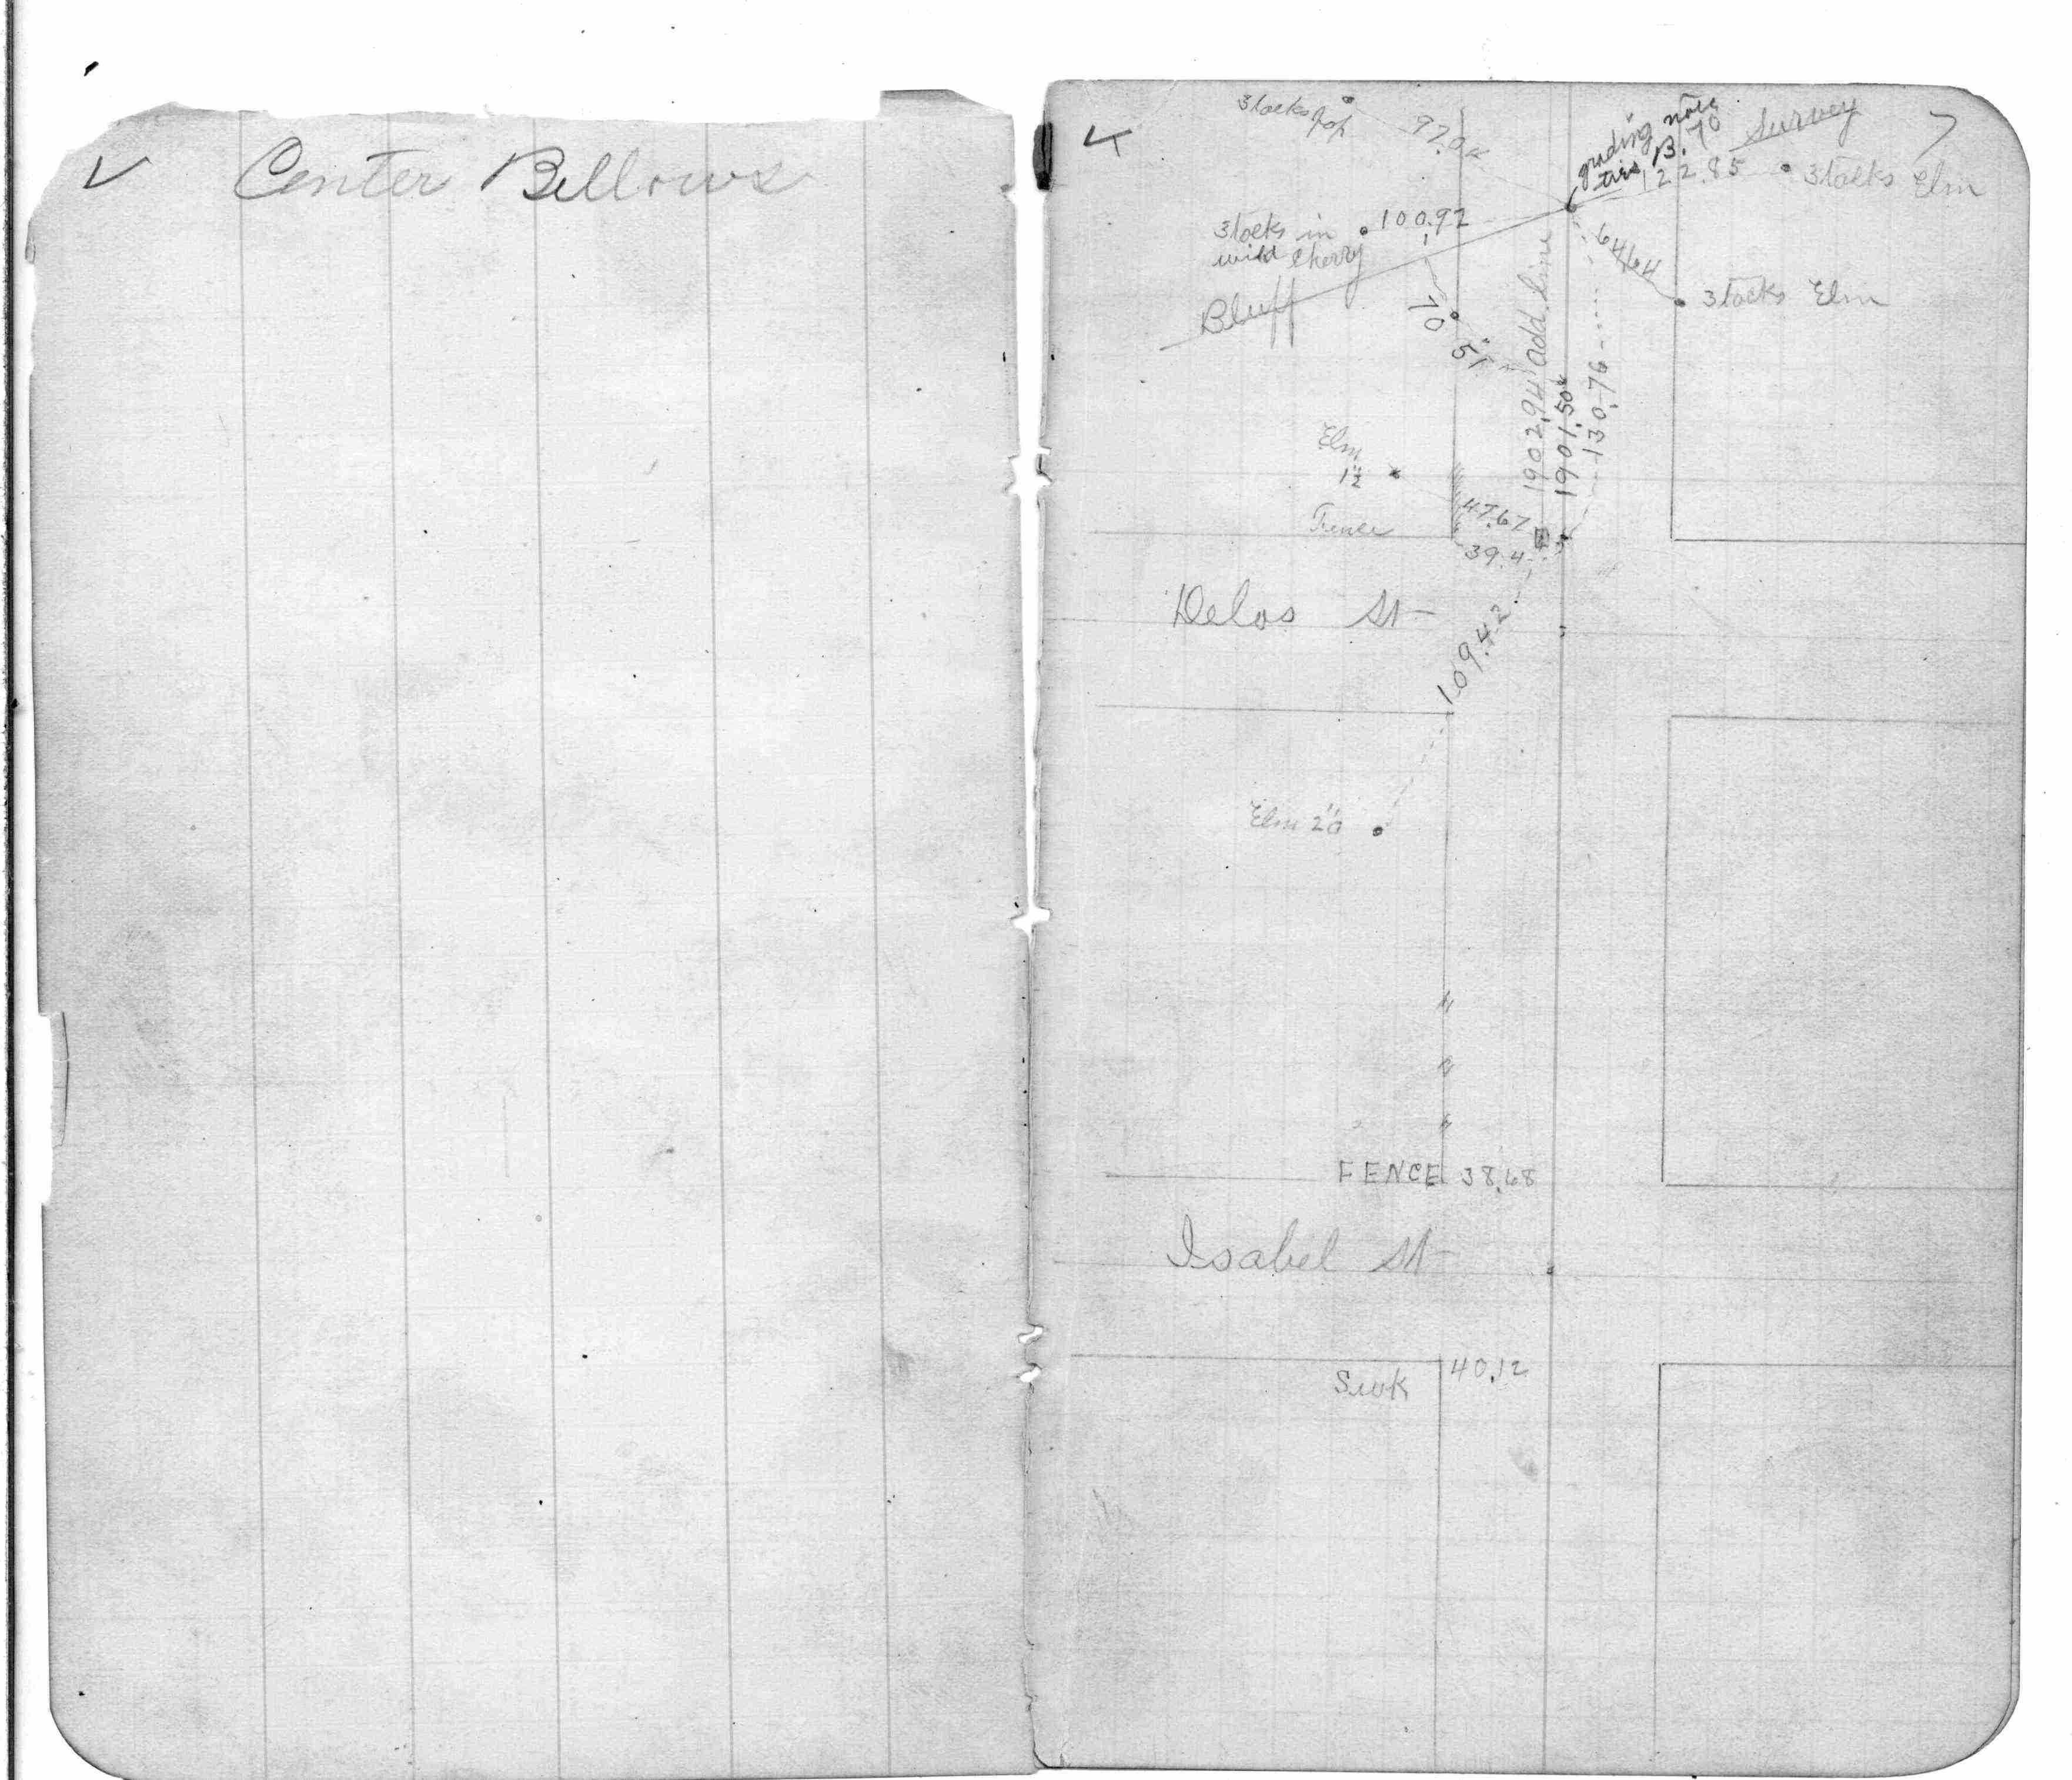 Center Bellows
3 tacks pop
97.04
grading note
ties B. 70
Survey
7
122.85
3 tacks Elm
3 tacks in
wild cherry
100.92
Bluff
64.64
3 tacks Elm
70
51
1902.94 add. line
1901.50
130.76
Elm
1½
47.67
Fence
39.4
Delos St
109.42
Elm 20"
FENCE 38.68
Isabel St
40.12